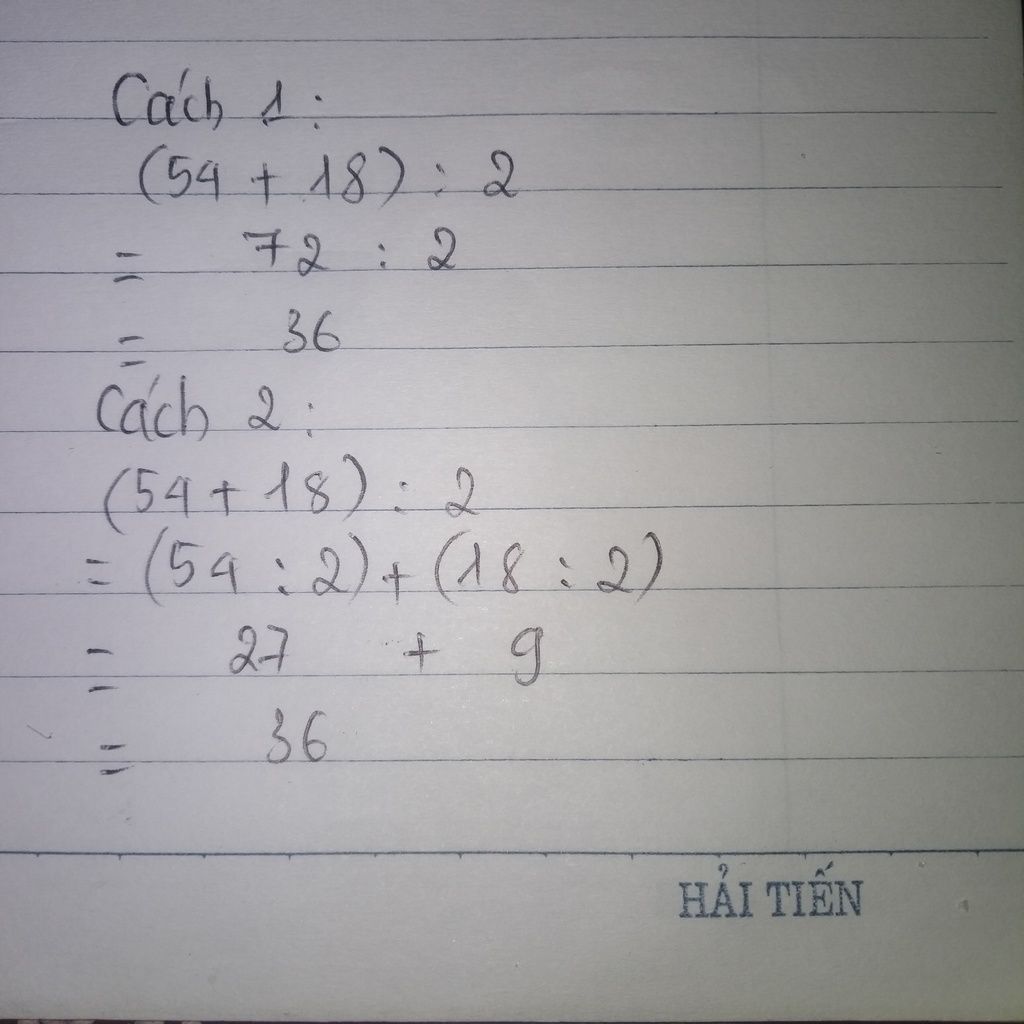 Cách 1:
(54 + 18) : 2
= 72 : 2
= 36
Cách 2:
(54 + 18) : 2
= (54 : 2) + (18 : 2)
= 27 + 9
= 36
HẢI TIẾN